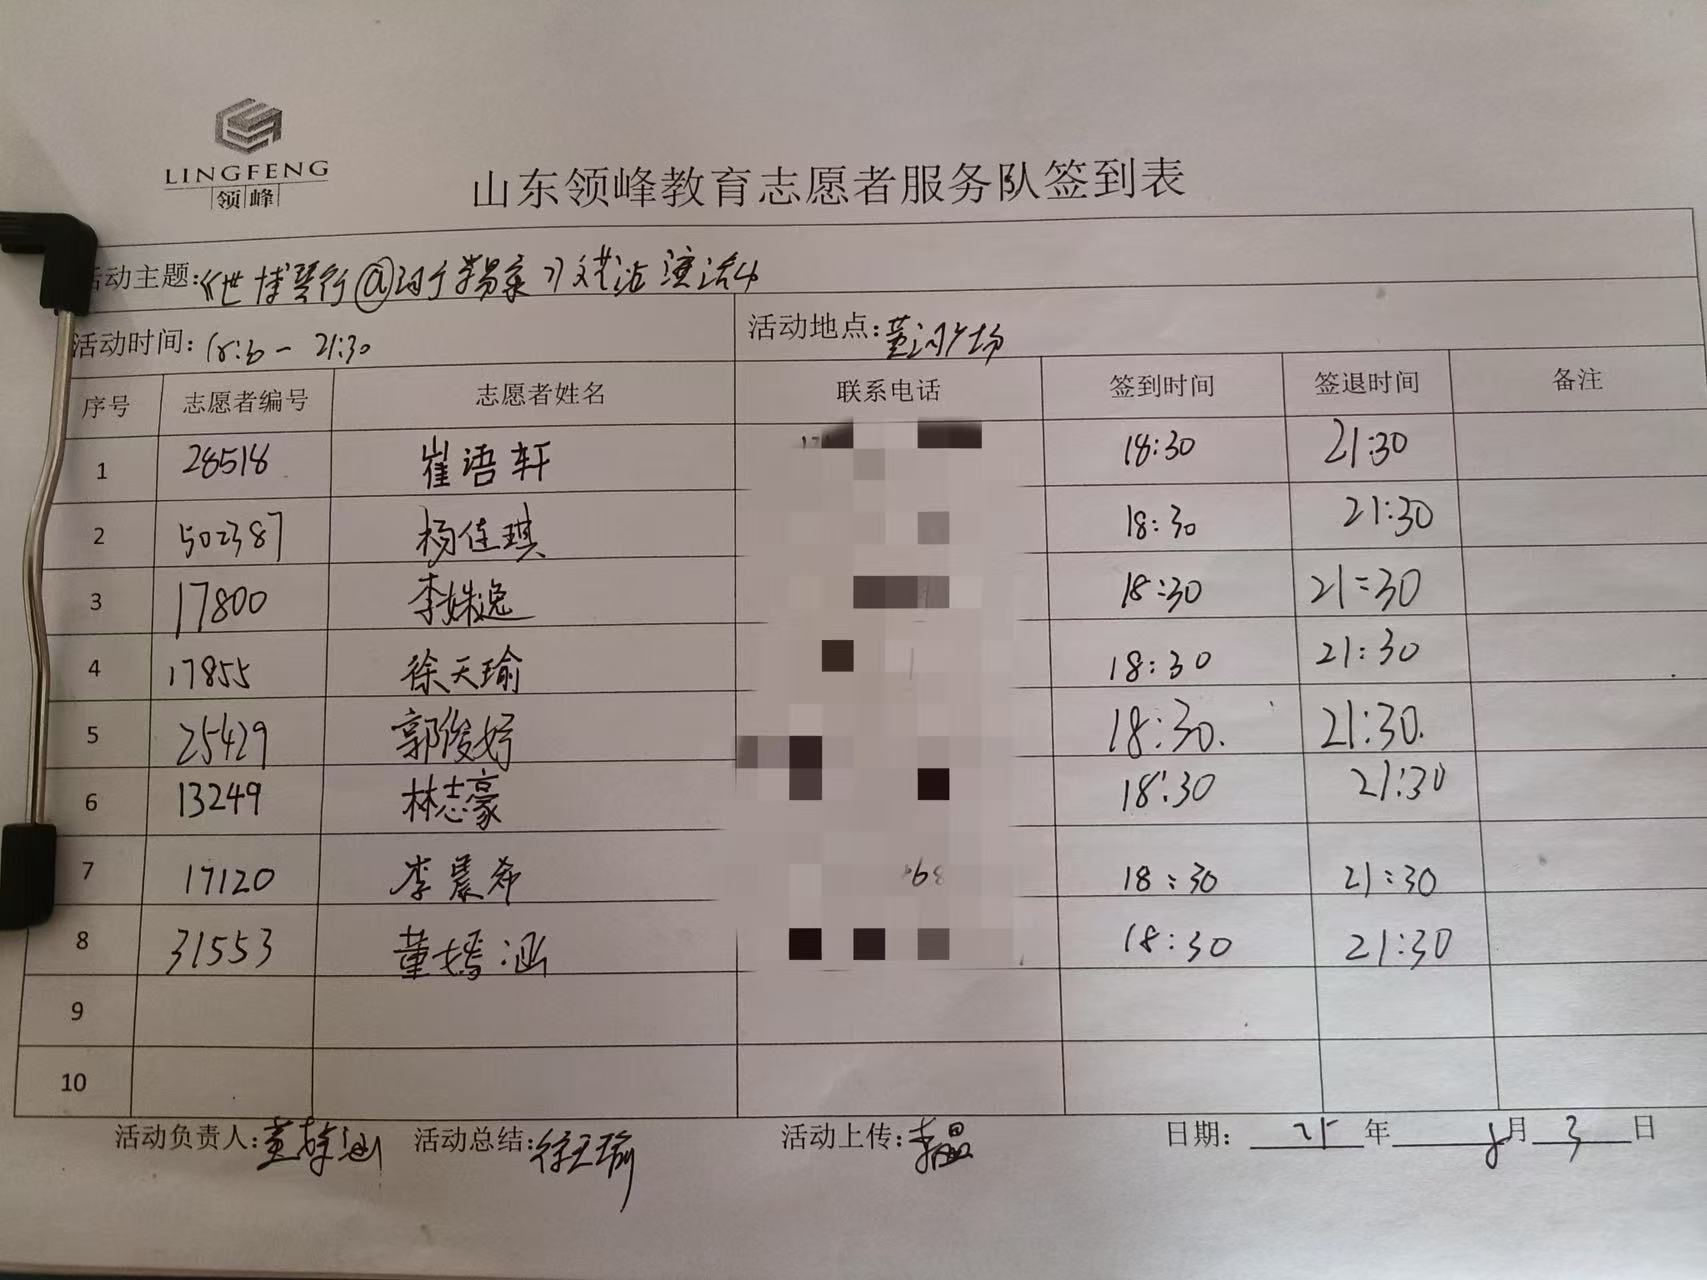 LINGFENG
领峰
山东领峰教育志愿者服务队签到表
活动主题:
活动时间: 21:30
活动地点: 广场
序号 志愿者编号 志愿者姓名 联系电话 签到时间 签退时间 备注
1 28518 崔语轩 18:30 21:30
2 502387 杨佳琪 18:30 21:30
3 17800 李姝逸 18:30 21:30
4 17855 徐天瑜 18:30 21:30
5 25429 郭俊妤 18:30. 21:30.
6 13249 林志豪 18:30 21:30
7 17120 李晨希 68 18:30 21:30
8 31553 董嫣涵 18:30 21:30
9
10
活动负责人: 活动总结:徐天瑜 活动上传:李晶 日期: 25 年 8 月 3 日